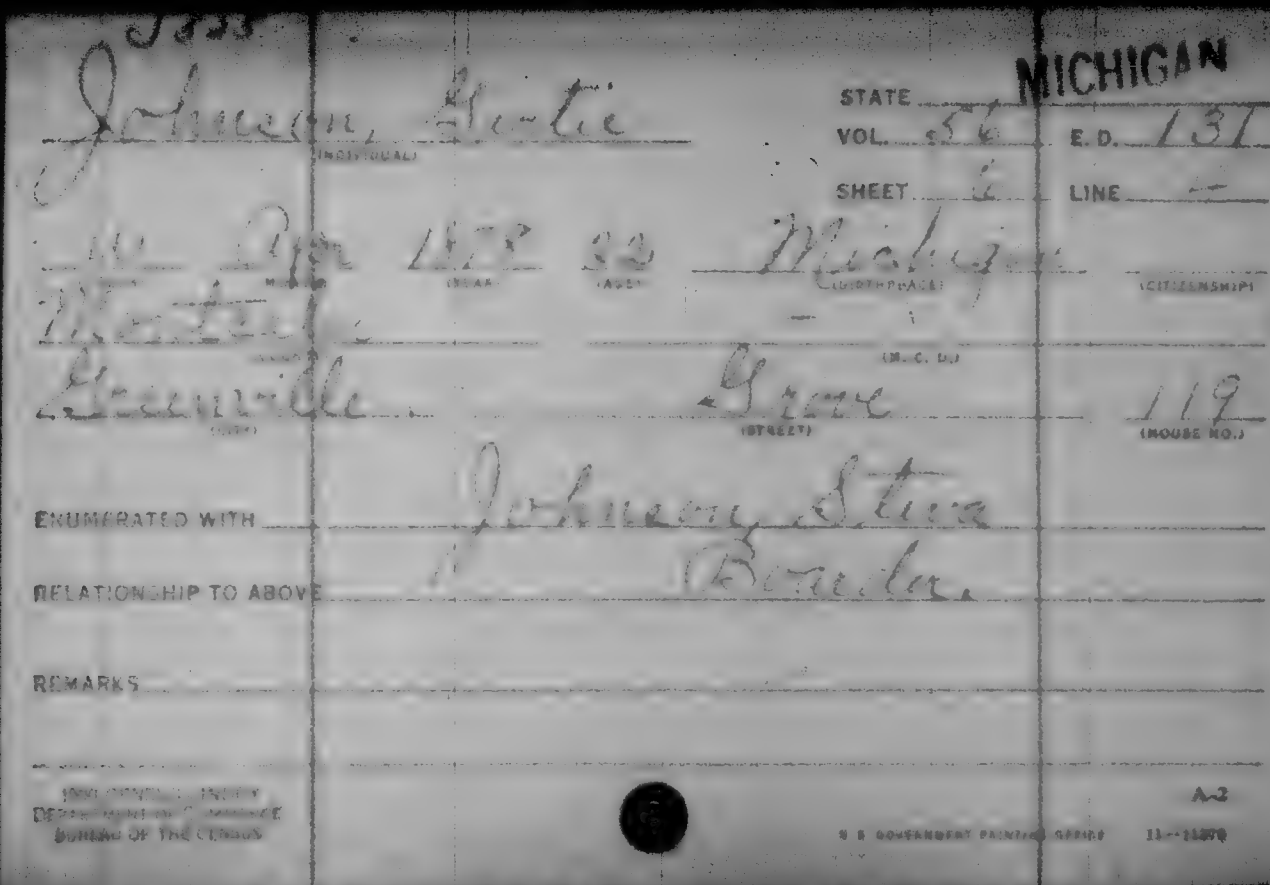 J525
MICHIGAN
Johnson, Gertie
STATE
(INDIVIDUAL)
VOL. 56 E. D. 131
SHEET 6 LINE —
W Apr 1878 22 Michigan
(YEAR) (AGE) (BIRTHPLACE) (CITIZENSHIP)
Montcalm —
(M. C. D.)
Greenville Grove 119
(CITY) (STREET) (HOUSE NO.)
ENUMERATED WITH Johnson, Steva
RELATIONSHIP TO ABOVE Boarder.
REMARKS
1900 CENSUS—INDEX A-2
DEPARTMENT OF COMMERCE
BUREAU OF THE CENSUS U S GOVERNMENT PRINTING OFFICE